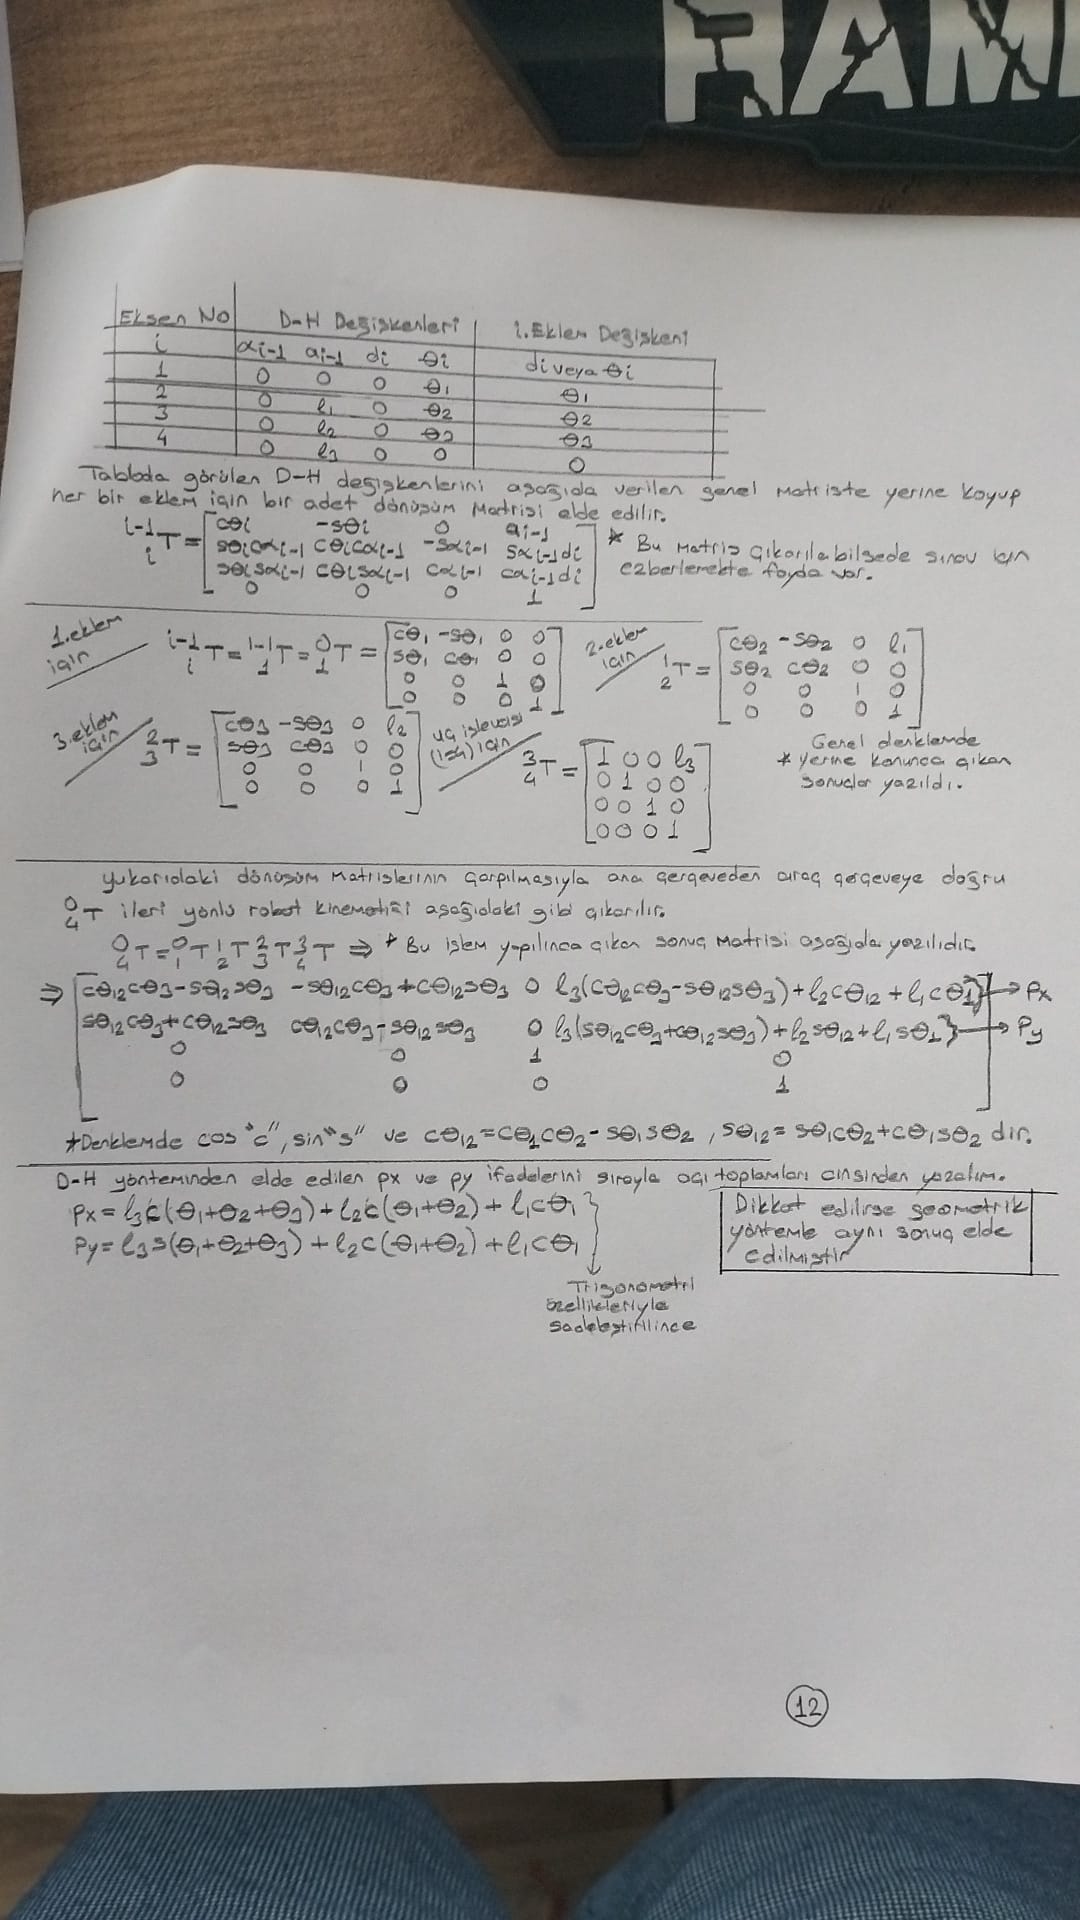 HAM
Eksen No D-H Değişkenleri i. Eklem Değişkeni
i αi-1 ai-1 di θi di veya θi
1 0 0 0 θ1 θ1
2 0 l1 0 θ2 θ2
3 0 l2 0 θ3 θ3
4 0 l3 0 0 0
Tabloda görülen D-H değişkenlerini aşağıda verilen genel matriste yerine koyup
her bir eklem için bir adet dönüşüm matrisi elde edilir.
i-1 i T = [ cθi -sθi 0 ai-1
sθicαi-1 cθicαi-1 -sαi-1 sαi-1di
sθisαi-1 cθisαi-1 cαi-1 cαi-1di
0 0 0 1 ]
* Bu matris çıkarılabilsede sınav için
ezberlemekte fayda var.
1. eklem için
i-1 i T = 1-1 1 T = 0 1 T = [ cθ1 -sθ1 0 0
sθ1 cθ1 0 0
0 0 1 0
0 0 0 1 ]
2. eklem için
1 2 T = [ cθ2 -sθ2 0 l1
sθ2 cθ2 0 0
0 0 1 0
0 0 0 1 ]
3. eklem için
2 3 T = [ cθ3 -sθ3 0 l2
sθ3 cθ3 0 0
0 0 1 0
0 0 0 1 ]
uç işlevcisi
(i=4) için
3 4 T = [ 1 0 0 l3
0 1 0 0
0 0 1 0
0 0 0 1 ]
Genel denklemde
* yerine konunca çıkan
sonuçlar yazıldı.
Yukarıdaki dönüşüm matrislerinin çarpılmasıyla ana çerçeveden araç çerçeveye doğru
0 4 T ileri yönlü robot kinematiği aşağıdaki gibi çıkarılır.
0 4 T = 0 1 T 1 2 T 2 3 T 3 4 T ⇒ * Bu işlem yapılınca çıkan sonuç matrisi aşağıda yazılıdır.
⇒ [ cθ12cθ3-sθ12sθ3 -sθ12cθ3+cθ12sθ3 0 l3(cθ12cθ3-sθ12sθ3)+l2cθ12+l1cθ1 } → Px
sθ12cθ3+cθ12sθ3 cθ12cθ3-sθ12sθ3 0 l3(sθ12cθ3+cθ12sθ3)+l2sθ12+l1sθ1 } → Py
0 0 1 0
0 0 0 1 ]
*Denklemde cos "c", sin "s" ve cθ12=cθ1cθ2-sθ1sθ2, sθ12=sθ1cθ2+cθ1sθ2 dir.
D-H yönteminden elde edilen px ve py ifadelerini sırayla açı toplamları cinsinden yazalım.
Px = l3c(θ1+θ2+θ3)+l2c(θ1+θ2)+l1cθ1
Py = l3s(θ1+θ2+θ3)+l2c(θ1+θ2)+l1cθ1
Trigonometri
özellikleriyle
sadeleştirilince
Dikkat edilirse geometrik
yöntemle aynı sonuç elde
edilmiştir
12